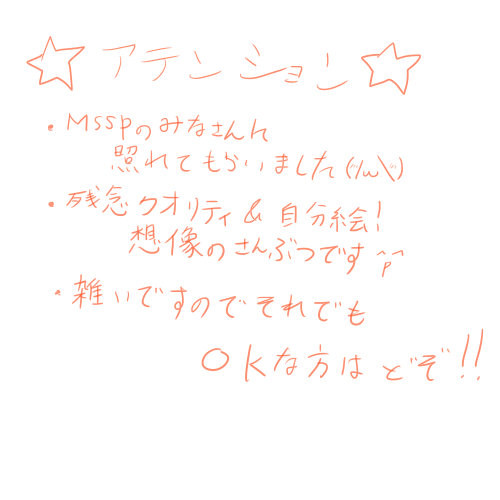 ☆アテンション☆
・MSSPのみなさんに
照れてもらいました(/ω\)
・残念クオリティ&自分絵!
想像のさんぶつです^p^
・雑いですのでそれでも
OKな方はどぞ!!